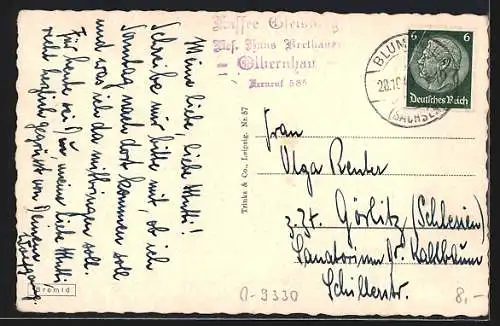 Kaffee
Bes. Hans Brethauer
Olbernhau
Fernruf 586
Meine liebe, liebe Mutti!
Schreibe mir bitte mit, ob ich
Sonntag nach dort kommen soll
und was ich da mitbringen soll.
Für heute sei Du, meine liebe Mutti
recht herzlich gegrüßt von Deinem
Wolfgang.
Bromid
Trinks & Co., Leipzig. Nr. 57
BLUM
28.10.
(SACHSEN)
6 6
Deutsches Reich
Frau
Olga Reuter
z. Zt. Görlitz (Schlesien)
Sanatorium Dr. Kahlbaum
Schillerstr.
A-9330
8,-